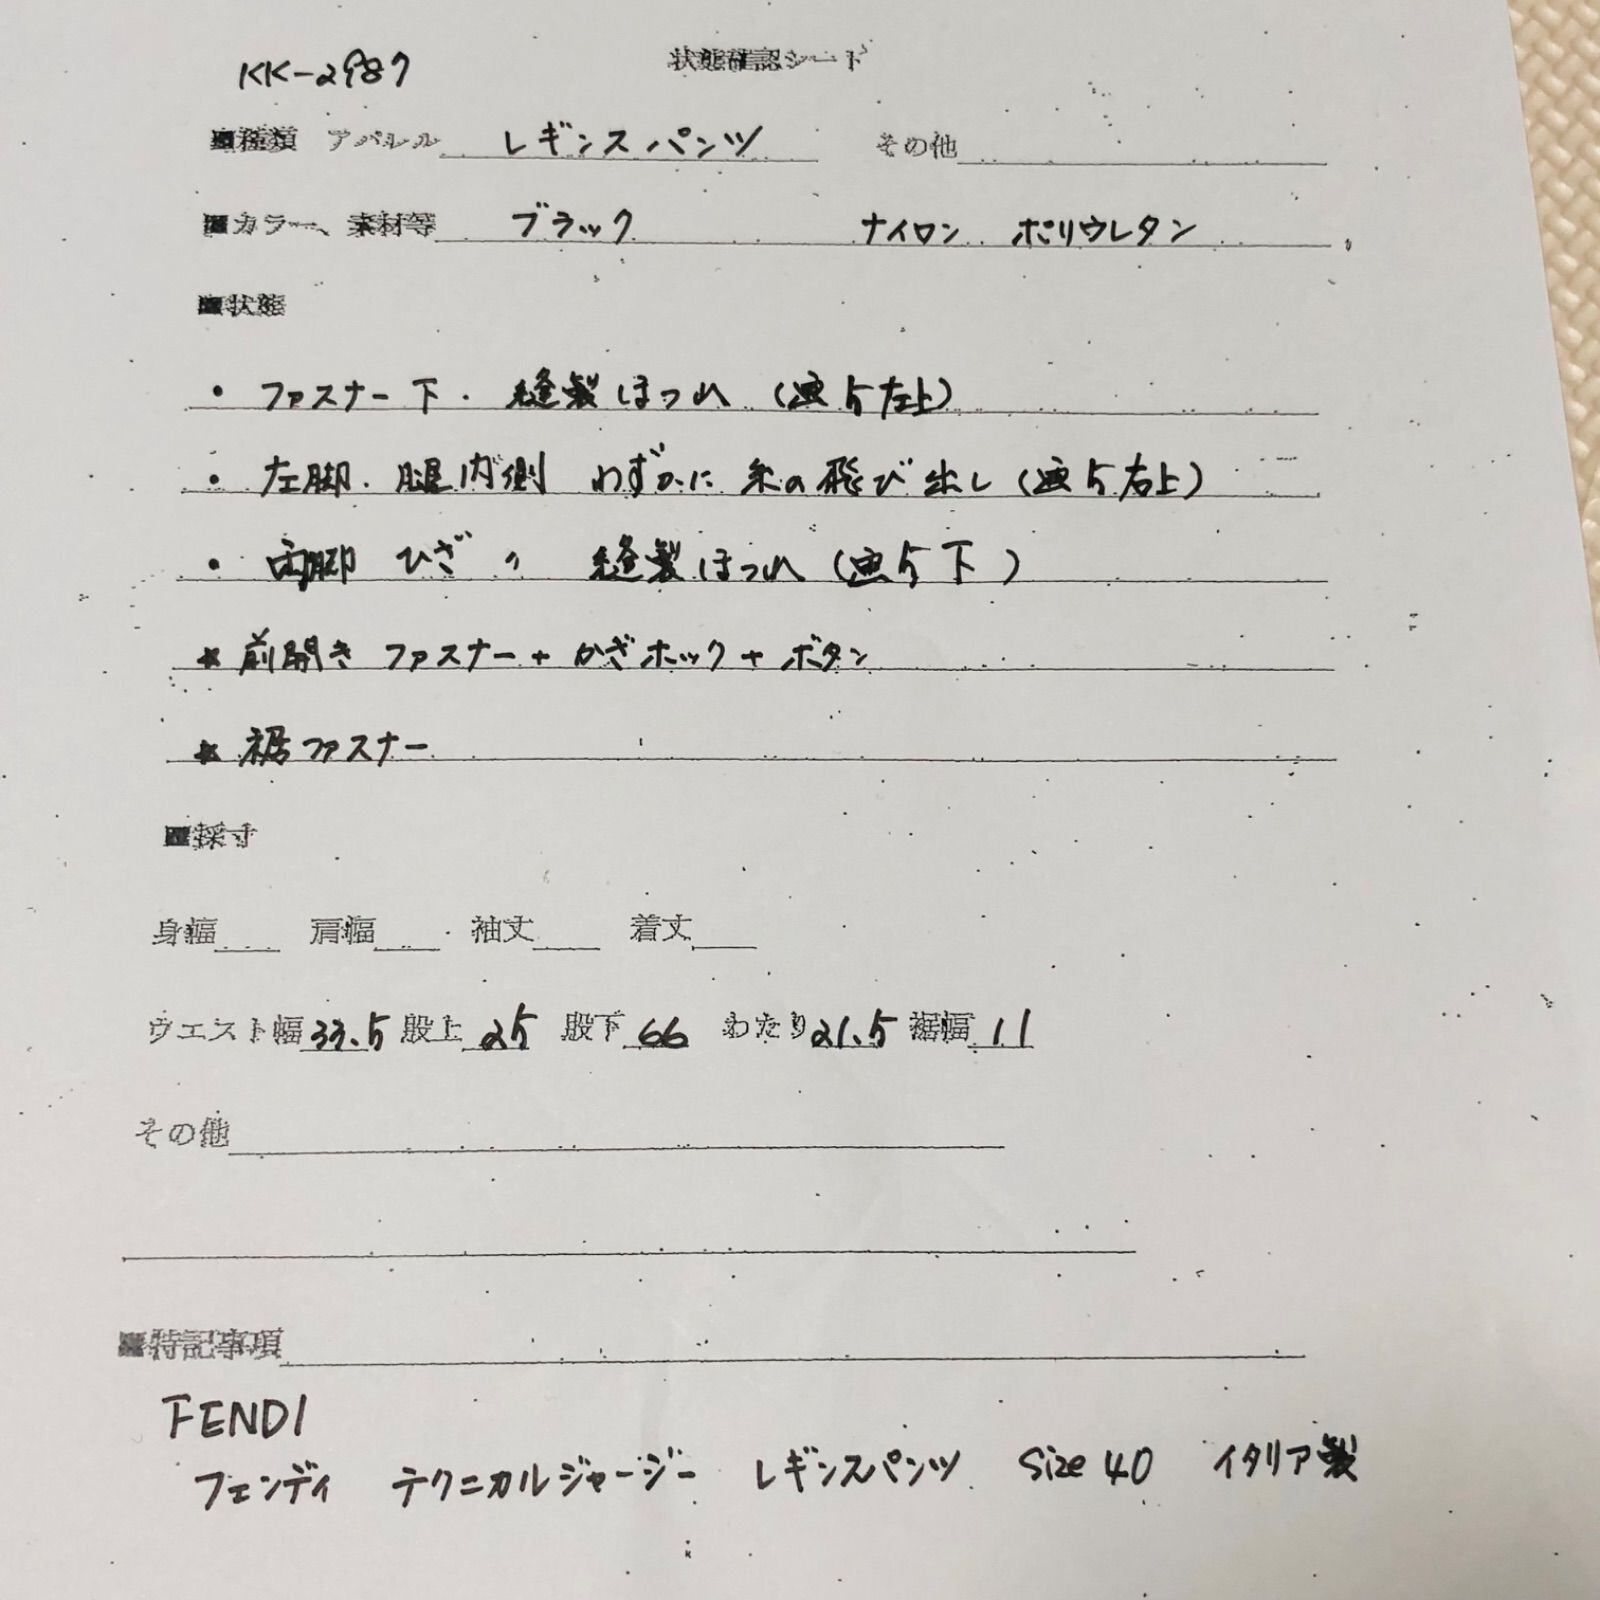 KK-2987 状態確認シート
■種類 アパレル レギンスパンツ その他
■カラー、素材等 ブラック ナイロン ポリウレタン
■状態
・ファスナー下. 縫製ほつれ (画5左上)
・左脚. 腿内側 わずかに 糸の飛び出し (画5右上)
・両脚 ひざ 〃 縫製ほつれ (画5下)
★前開き ファスナー+かぎホック+ボタン
★裾ファスナー
■採寸
身幅 肩幅 袖丈 着丈
ウエスト幅33.5 股上25 股下66 わたり21.5 裾幅11
その他
■特記事項
FENDI
フェンディ テクニカルジャージー レギンスパンツ Size 40 イタリア製